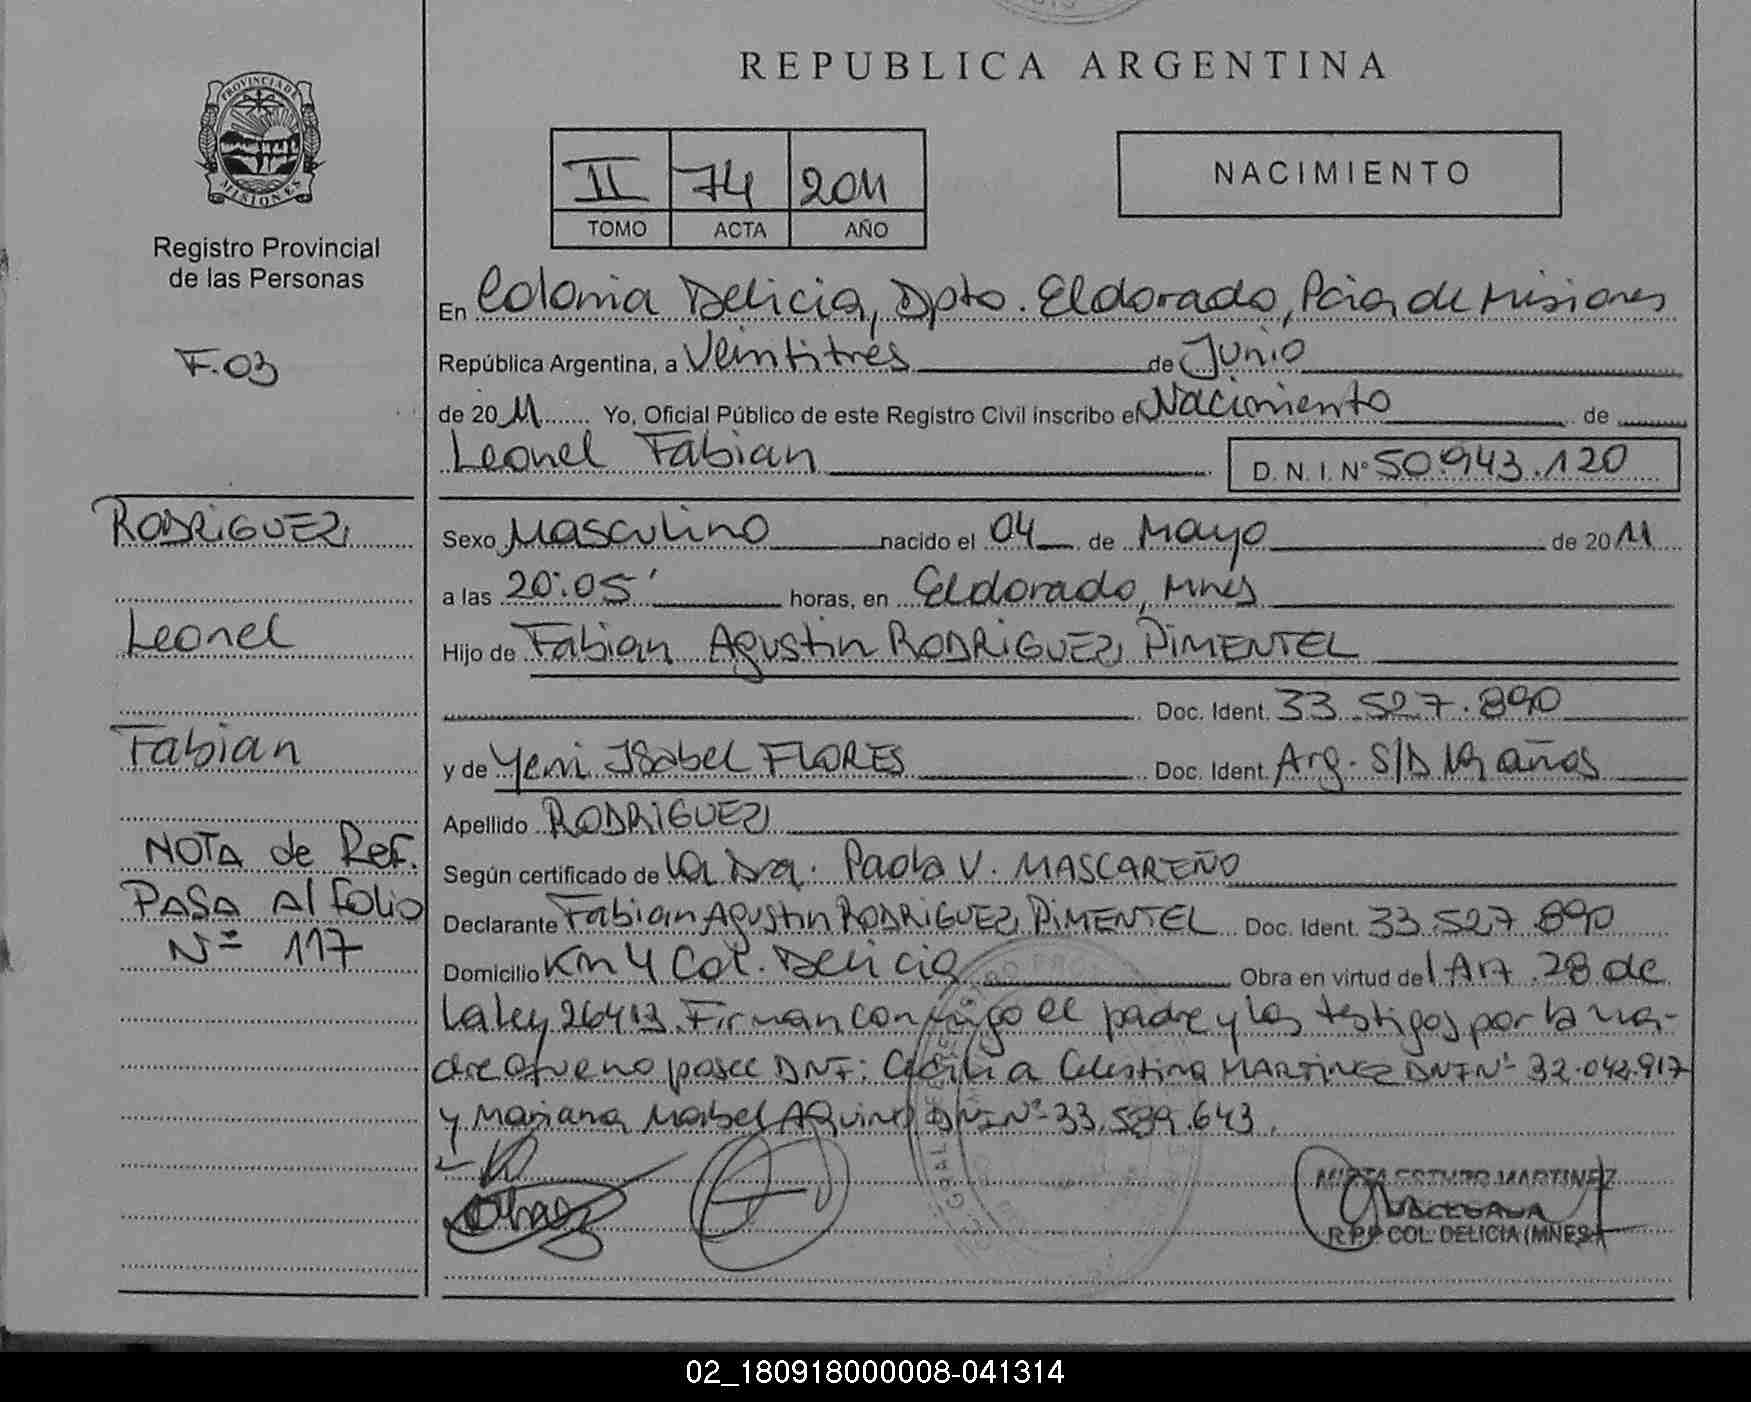 REPUBLICA ARGENTINA
PROVINCIA DE MISIONES
Registro Provincial
de las Personas
II 74 2011
TOMO ACTA AÑO
NACIMIENTO
F.03
En Colonia Delicia, Dpto. Eldorado, Pcia, de Misiones
República Argentina, a Veintitres de Junio
de 2011 Yo, Oficial Público de este Registro Civil inscribo el Nacimiento de
Leonel Fabian D. N. I. Nº 50.943.120
RODRIGUEZ
Leonel
Fabian
NOTA de Ref.
PASA Al folio
Nº 117
Sexo Masculino nacido el 04 de Mayo de 2011
a las 20:05' horas, en Eldorado, Mnes
Hijo de Fabian Agustin RODRIGUEZ PIMENTEL
Doc. Ident. 33.527.890
y de Yeni Isabel FLORES Doc. Ident. Arg. S/D 19 años
Apellido RODRIGUEZ
Según certificado de la Dra. Paola V. MASCAREÑO
Declarante Fabian Agustin RODRIGUEZ PIMENTEL Doc. Ident. 33.527.890
Domicilio Km 4 Col. Delicia Obra en virtud del Art. 28 de
La ley 26413. Firman conmigo el padre y los testigos por la ma-
dre que no posee DNI: Cecilia Celestina MARTINEZ DNI Nº 32.042.917
y Mariana Mabel AQuino DNI Nº 33.589.643.
MARTINEZ
R.P.P COL. DELICIA (MNES)
02_180918000008-041314